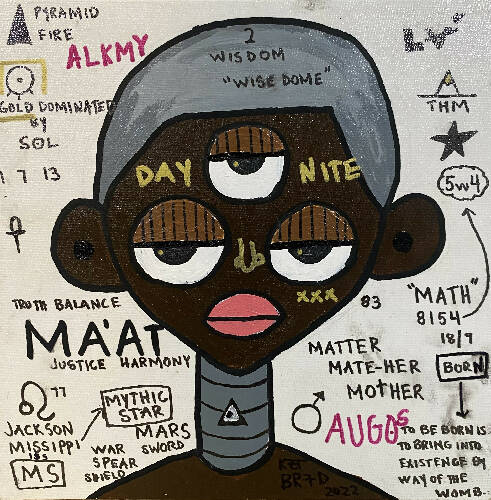 PYRAMID
FIRE
ALKMY
2
WISDOM
"WISE DOME"
GOLD DOMINATED
BY
SOL
1 7 13
DAY NITE
THM
5W4
XXX
83
"MATH"
8154
18/9
BORN
TRUTH BALANCE
MA'AT
JUSTICE HARMONY
77
JACKSON
MISSIPPI
MS
MYTHIC
STAR
MARS
SWORD
WAR
SPEAR
SHIELD
MATTER
MATE-HER
MOTHER
AUGOS
TO BE BORN IS
TO BRING INTO
EXISTENCE BY
WAY OF THE
WOMB.
2022